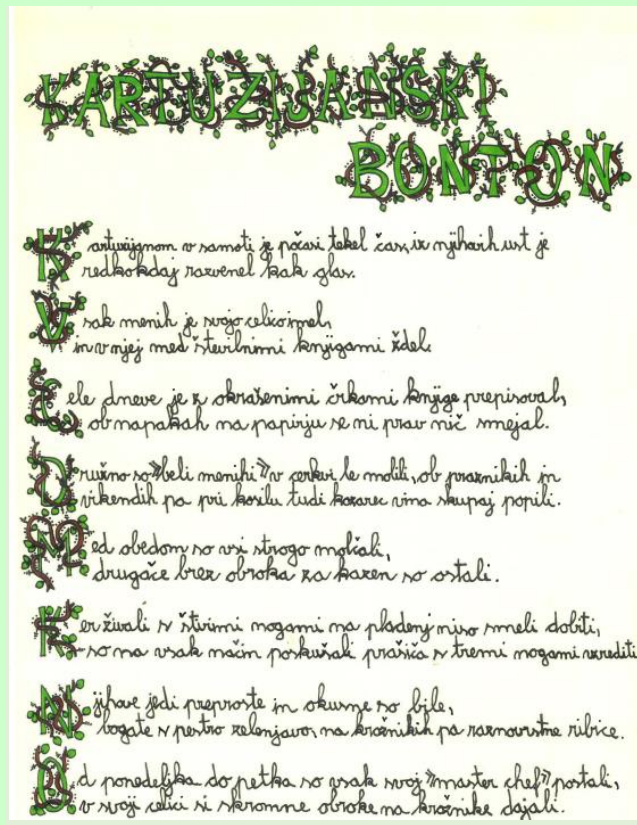 KARTUZIJANSKI
BONTON
Kartuzijanom v samoti je počasi tekel čas, iz njihovih ust je
redkokdaj razvenel kak glas.
Vsak menih je svojo celico imel,
in v njej med številnimi knjigami ždel.
Cele dneve je z okrašenimi črkami knjige prepisoval,
ob napakah na papirju se ni prav nič smejal.
Družno so »beli menihi« v cerkvi le molili, ob praznikih in
vikendih pa pri kosilu tudi kozarec vina skupaj popili.
Med obedom so vsi strogo molčali,
drugače brez obroka za kazen so ostali.
Ker živali s štirimi nogami na pladenj niso smeli dobiti,
so na vsak način poskušali prašiča s tremi nogami vzrediti.
Njihove jedi preproste in okusne so bile,
bogate s pestro zelenjavo, na krožnikih pa raznovrstne ribice.
Od ponedeljka do petka so vsak svoj »master chef« postali,
v svoji celici si skromne obroke na krožnike dajali.